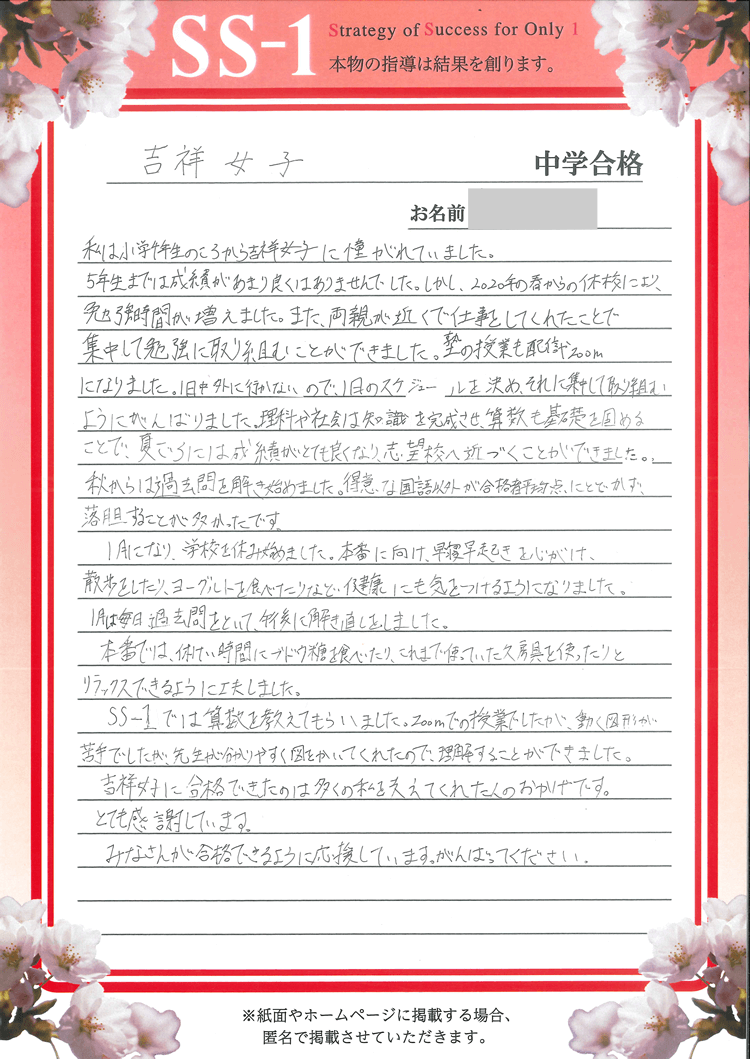 SS-1
Strategy of Success for Only 1
本物の指導は結果を創ります。
吉祥女子 中学合格
お名前
私は小学4年生のころから吉祥女子に憧がれていました。
5年生までは成績があまり良くはありませんでした。しかし、2020年の春からの休校により、
勉強時間が増えました。また、両親が近くで仕事をしてくれたことで
集中して勉強に取り組むことができました。塾の授業も配信やzoom
になりました。1日中外に行かないので、1日のスケジュールを決め、それに集中して取り組む
ようにがんばりました。理科や社会は知識を完成させ、算数も基礎を固める
ことで、夏ごろには成績がとても良くなり、志望校へ近づくことができました。
秋からは過去問を解き始めました。得意な国語以外が合格者平均点にとどかず、
落胆することが多かったです。
1月になり、学校を休み始めました。本番に向け、早寝早起きを心がけ、
散歩をしたり、ヨーグルトを食べたりなど、健康にも気をつけるようになりました。
1月は毎日過去問をといて、午後に解き直しをしました。
本番では、休けい時間にブドウ糖を食べたり、これまで使っていた文房具を使ったりと
リラックスできるように工夫しました。
SS-1では算数を教えてもらいました。zoomでの授業でしたが、動く図形が
苦手でしたが、先生が分かりやすく図をかいてくれたので、理解することができました。
吉祥女子に合格できたのは多くの私を支えてくれた人のおかげです。
とても感謝しています。
みなさんが合格できるように応援しています。がんばってください。
※紙面やホームページに掲載する場合、
匿名で掲載させていただきます。